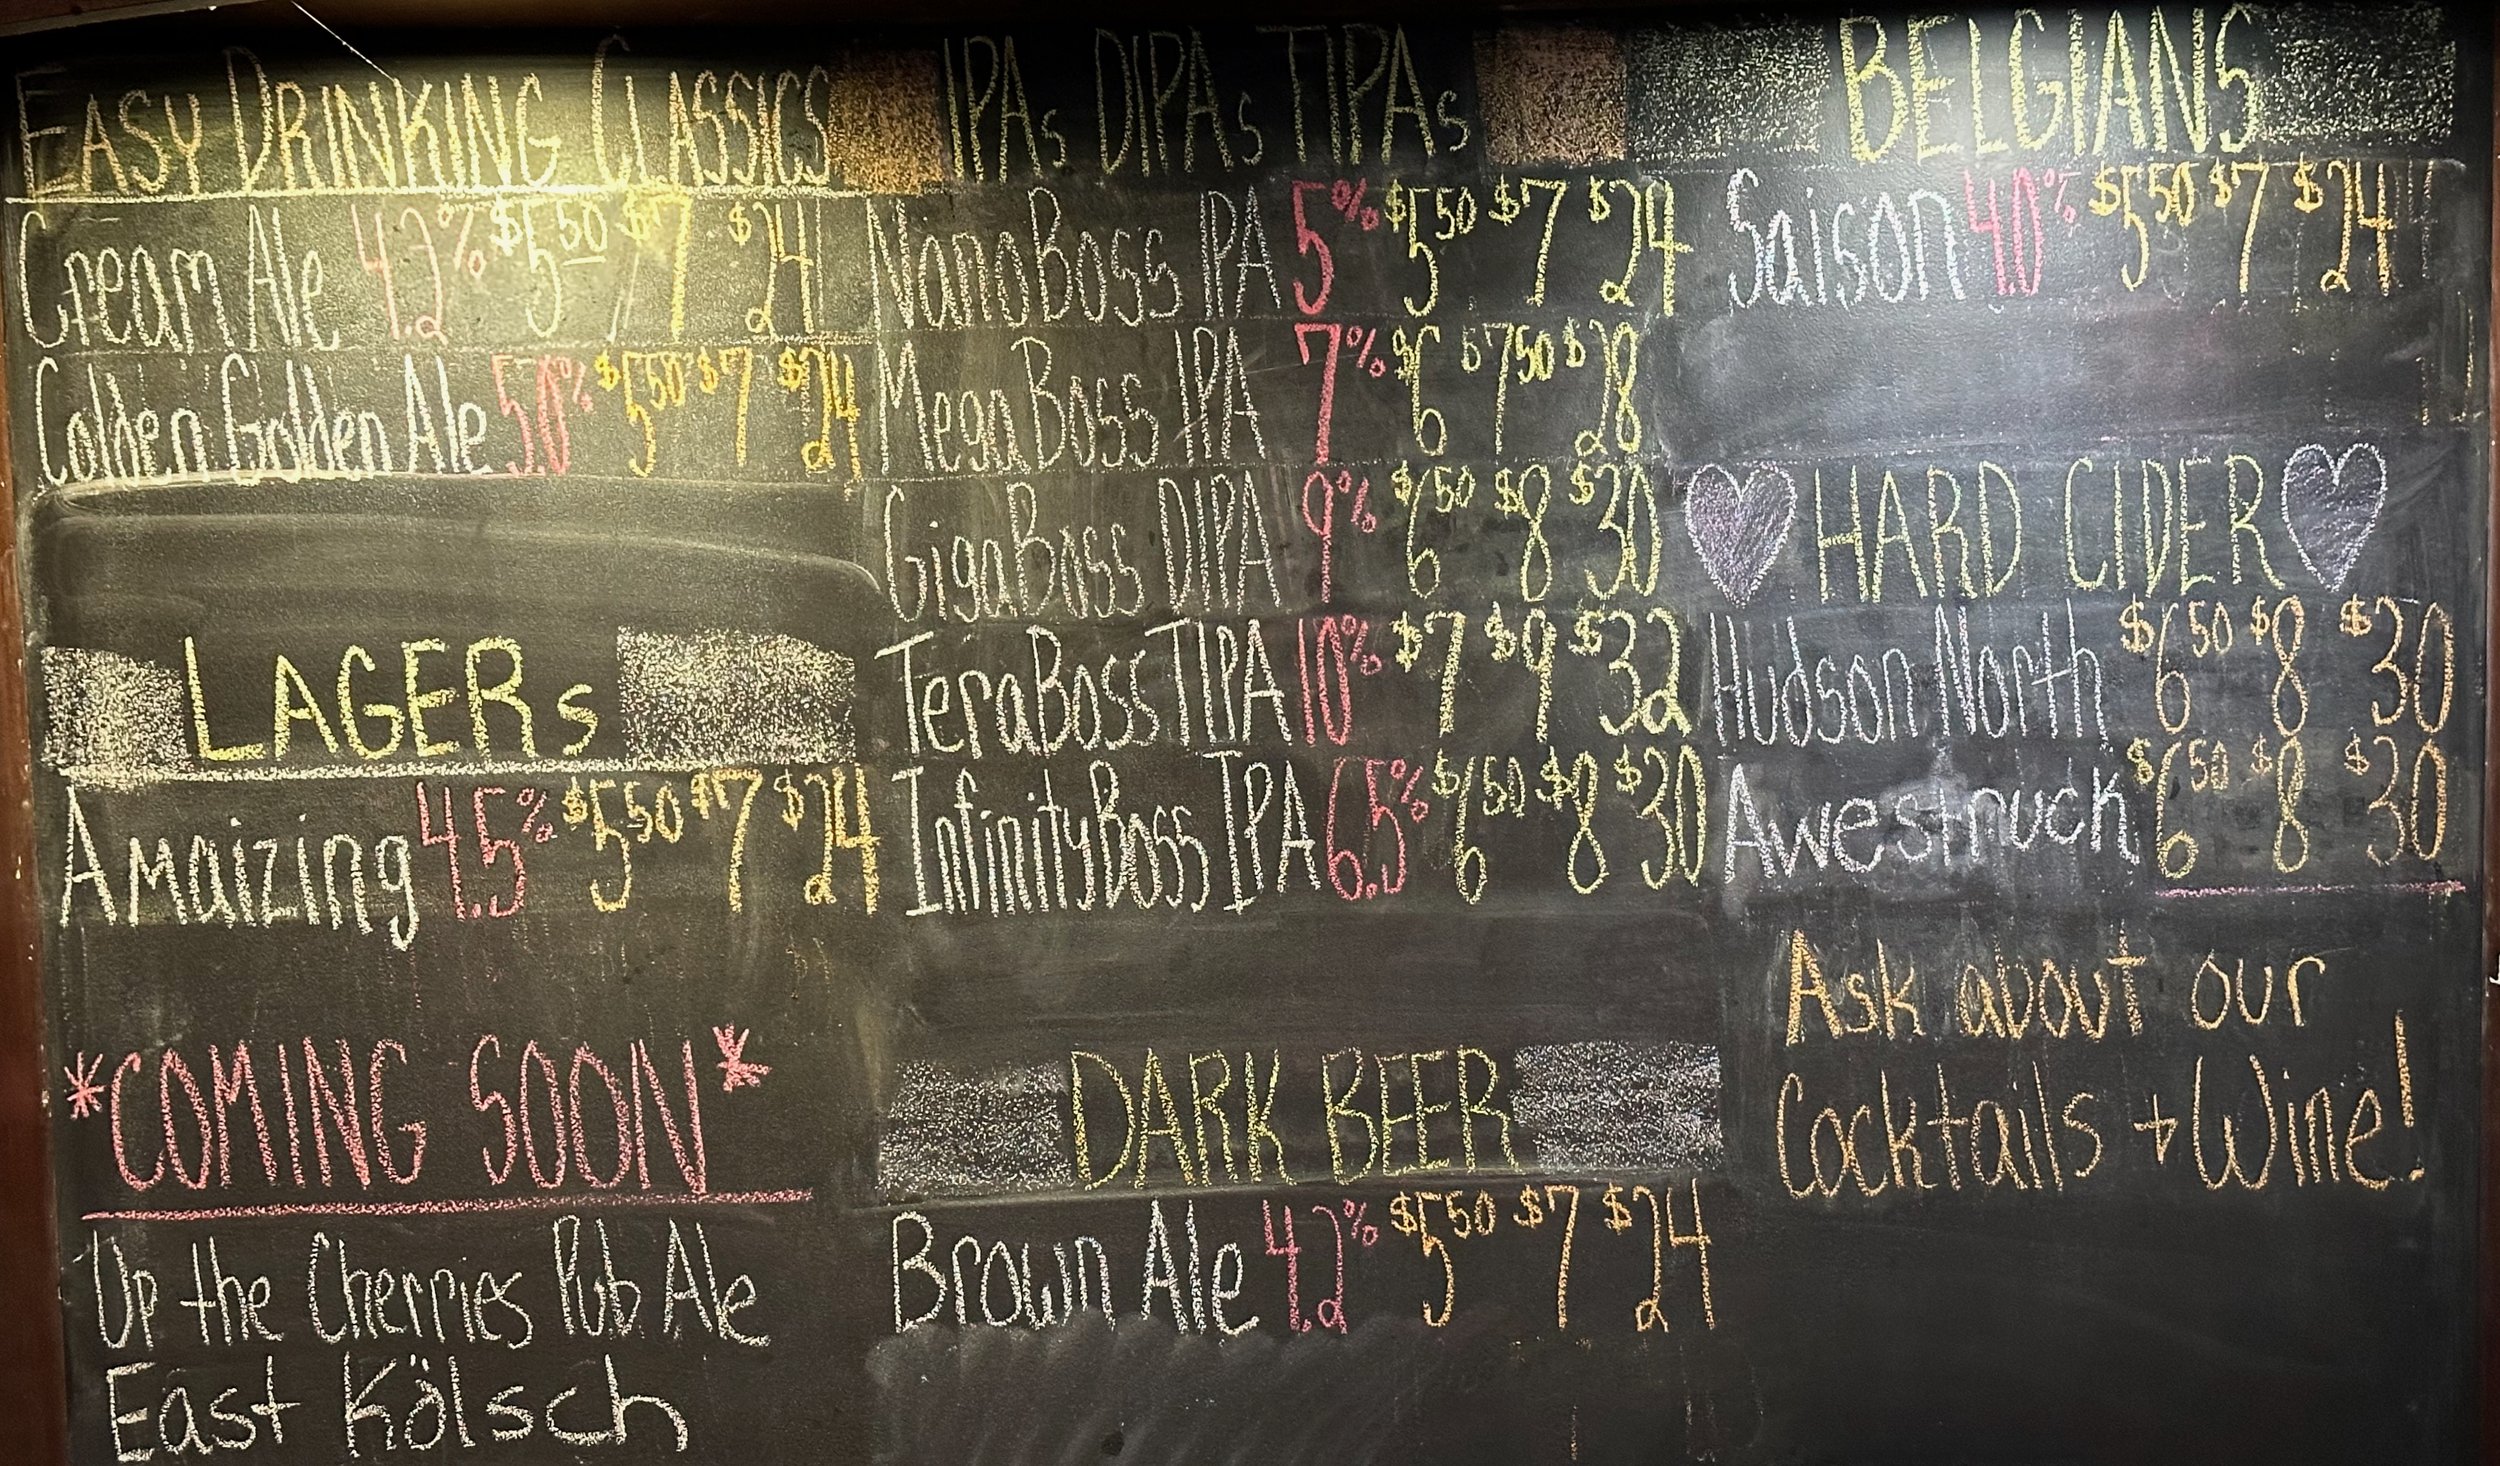 EASY DRINKING CLASSICS
Cream Ale 4.2% $5.50 $7 $24
Golden Golden Ale 5.0% $5.50 $7 $24
LAGERs
Amaizing 4.5% $5.50 $7 $24
*COMING SOON*
Up the Cherries Pub Ale
East Kölsch
IPAs DIPAs TIPAs
NanoBoss IPA 5% $5.50 $7 $24
MegaBoss IPA 7% $6 $7.50 $28
GigaBoss DIPA 9% $6.50 $8 $30
TeraBoss TIPA 10% $7 $9 $32
InfinityBoss IPA 6.5% $6.50 $8 $30
DARK BEER
Brown Ale 4.2% $5.50 $7 $24
BELGIANS
Saison 4.0% $5.50 $7 $24
HARD CIDER
Hudson North $6.50 $8 $30
Awestruck $6.50 $8 $30
Ask about our
Cocktails + Wine!